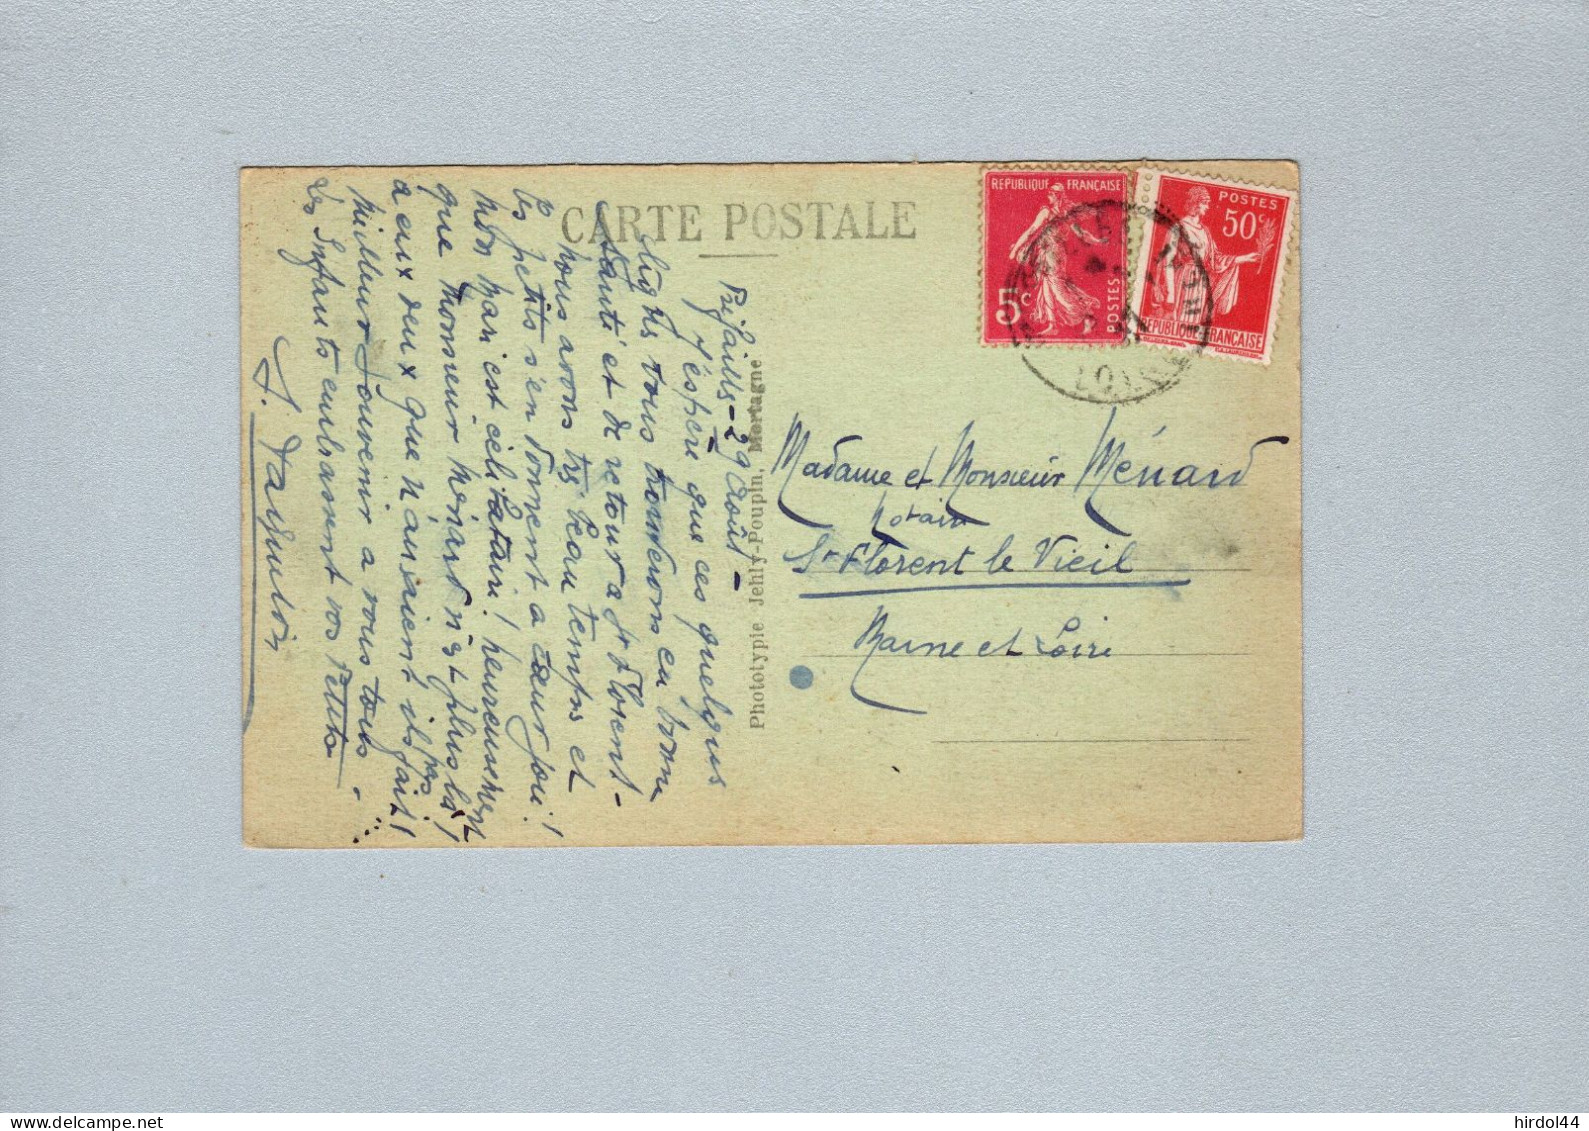 CARTE POSTALE
Préfailles - 29 Août -
J'espère que ces quelques
lignes vous trouverons en bonne
santé et de retour a St Florent -
Nous avons très beau temps et
les petits s'en donnent a cœur joie !
Mon mari est célibataire ! heureusement
que Monsieur Ménard n'est plus là !
a eux deux que n'auraient ils pas fait !
Meilleur souvenir a vous tous -
les Enfants embrassent vos Petits
Phototypie Jehly-Poupin, Mortagne
REPUBLIQUE FRANÇAISE
5c
POSTES
POSTES
50c
REPUBLIQUE FRANÇAISE
Madame et Monsieur Ménard
Notaire
St Florent le Vieil
Maine et Loire
hirdol44